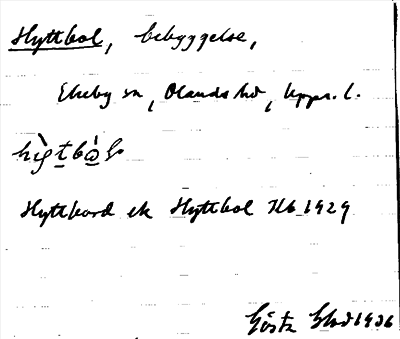 Hyttbol, bebyggelse,
Ekeby sn, Olands hd, Upps. l.
Hyttbord ek Hyttbol JK6 1929
Gösta 1936